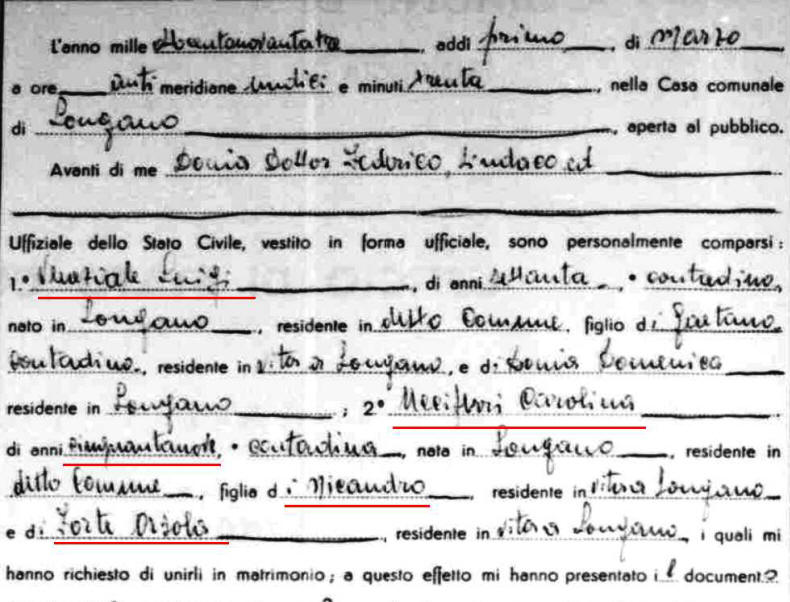 L'anno mille ottocentonovantatre, addì primo, di marzo
a ore anti meridiane undici e minuti trenta, nella Casa comunale
di Longano, aperta al pubblico.
Avanti di me Donia Dottor Federico, Sindaco ed
Uffiziale dello Stato Civile, vestito in forma ufficiale, sono personalmente comparsi:
1.° Luigi, di anni settanta, contadino,
nato in Longano, residente in detto Comune, figlio di Gaetano
contadino, residente in vita a Longano, e di Donia Domenica
residente in Longano; 2° Carolina
di anni cinquantanove, contadina, nata in Longano, residente in
detto Comune, figlia di Nicandro, residente in vita a Longano
e di Forte Orsola, residente in vita a Longano, i quali mi
hanno richiesto di unirli in matrimonio; a questo effetto mi hanno presentato i document